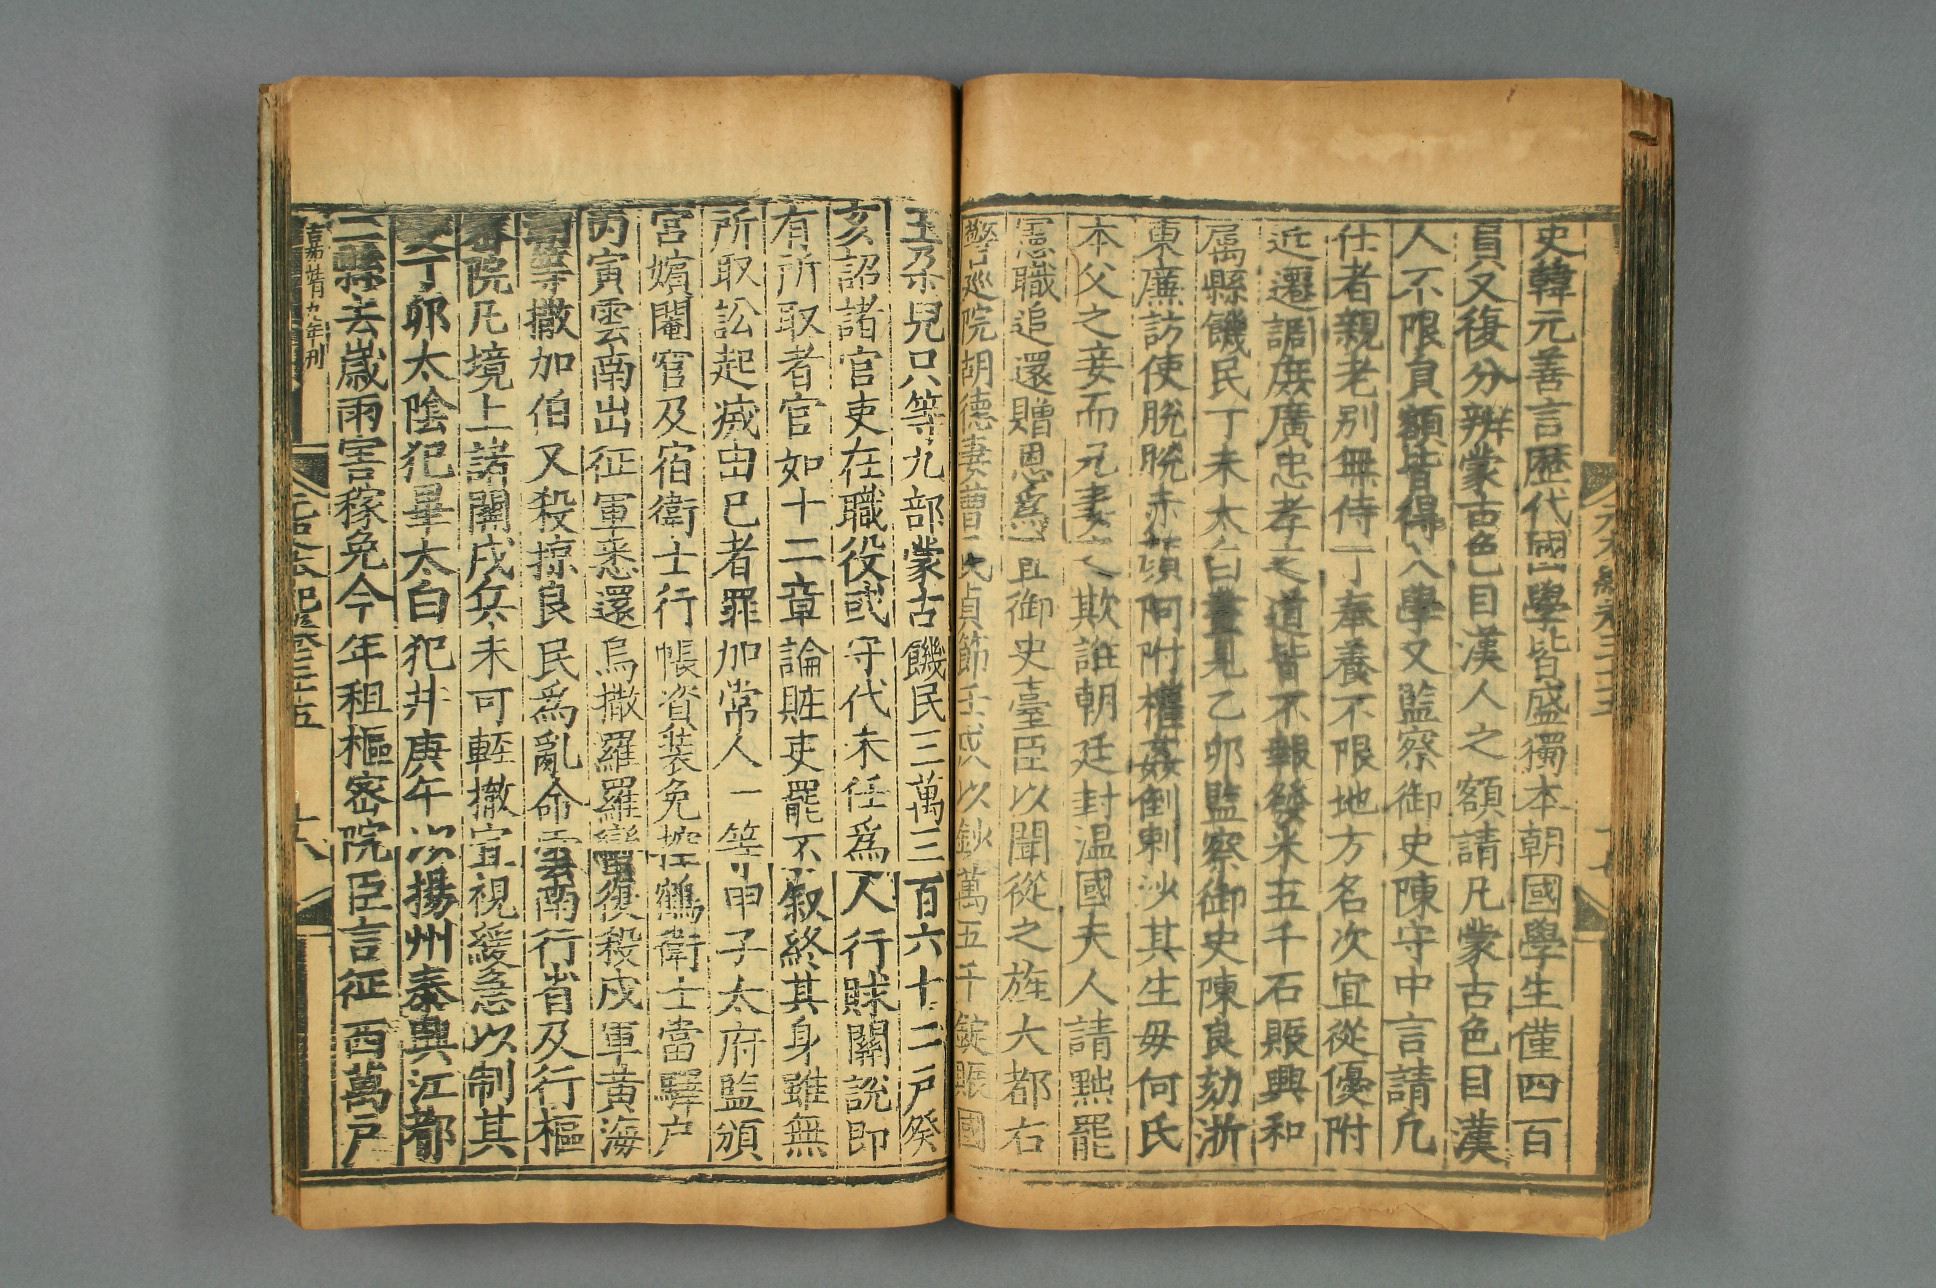 史韓元善言歷代國學皆盛獨本朝國學生僅四百
員又復分辨蒙古色目漢人之額請凡蒙古色目漢
人不限員額皆得入學又監察御史陳守中言請凡
仕者親老別無侍丁奉養不限地方名次宜從優附
近遷調庶廣忠孝之道皆不報發米五千石賑興和
属縣饑民丁未太白晝見乙卯監察御史陳良劾浙
東廉訪使脫脫赤顏阿附權姦倒剌沙其生毋何氏
本父之妾而兄妻之欺誑朝廷封温國夫人請黜罷
憲職追還贈恩爲宜御史臺臣以聞從之旌大都右
警廵院胡德妻曹氏貞節壬戌以鈔萬五千錠賑國
元本紀卷三十五
十七
王朶兒只等九部蒙古饑民三萬三百六十二戸癸
亥詔諸官吏在職役或守代未任爲人行賕關説即
有所取者官如十二章論贓吏罷不叙終其身雖無
所取訟起滅由已者罪加常人一等甲子太府監頒
宮嬪閹宦及宿衛士行帳資裝免控鶴衛士當驛户
丙寅雲南出征軍悉還烏撒羅羅蠻復殺戍軍黃海
等撒加伯又殺掠良民爲亂命雲南行省及行樞
密院凡境上諸關戍兵未可輕撤宜視緩急以制其
丁卯太陰犯畢太白犯井庚午以揚州泰興江都
二縣去歲雨害稼免今年租樞密院臣言征西萬戸
嘉靖九年刊
元史本紀卷三十五
十八